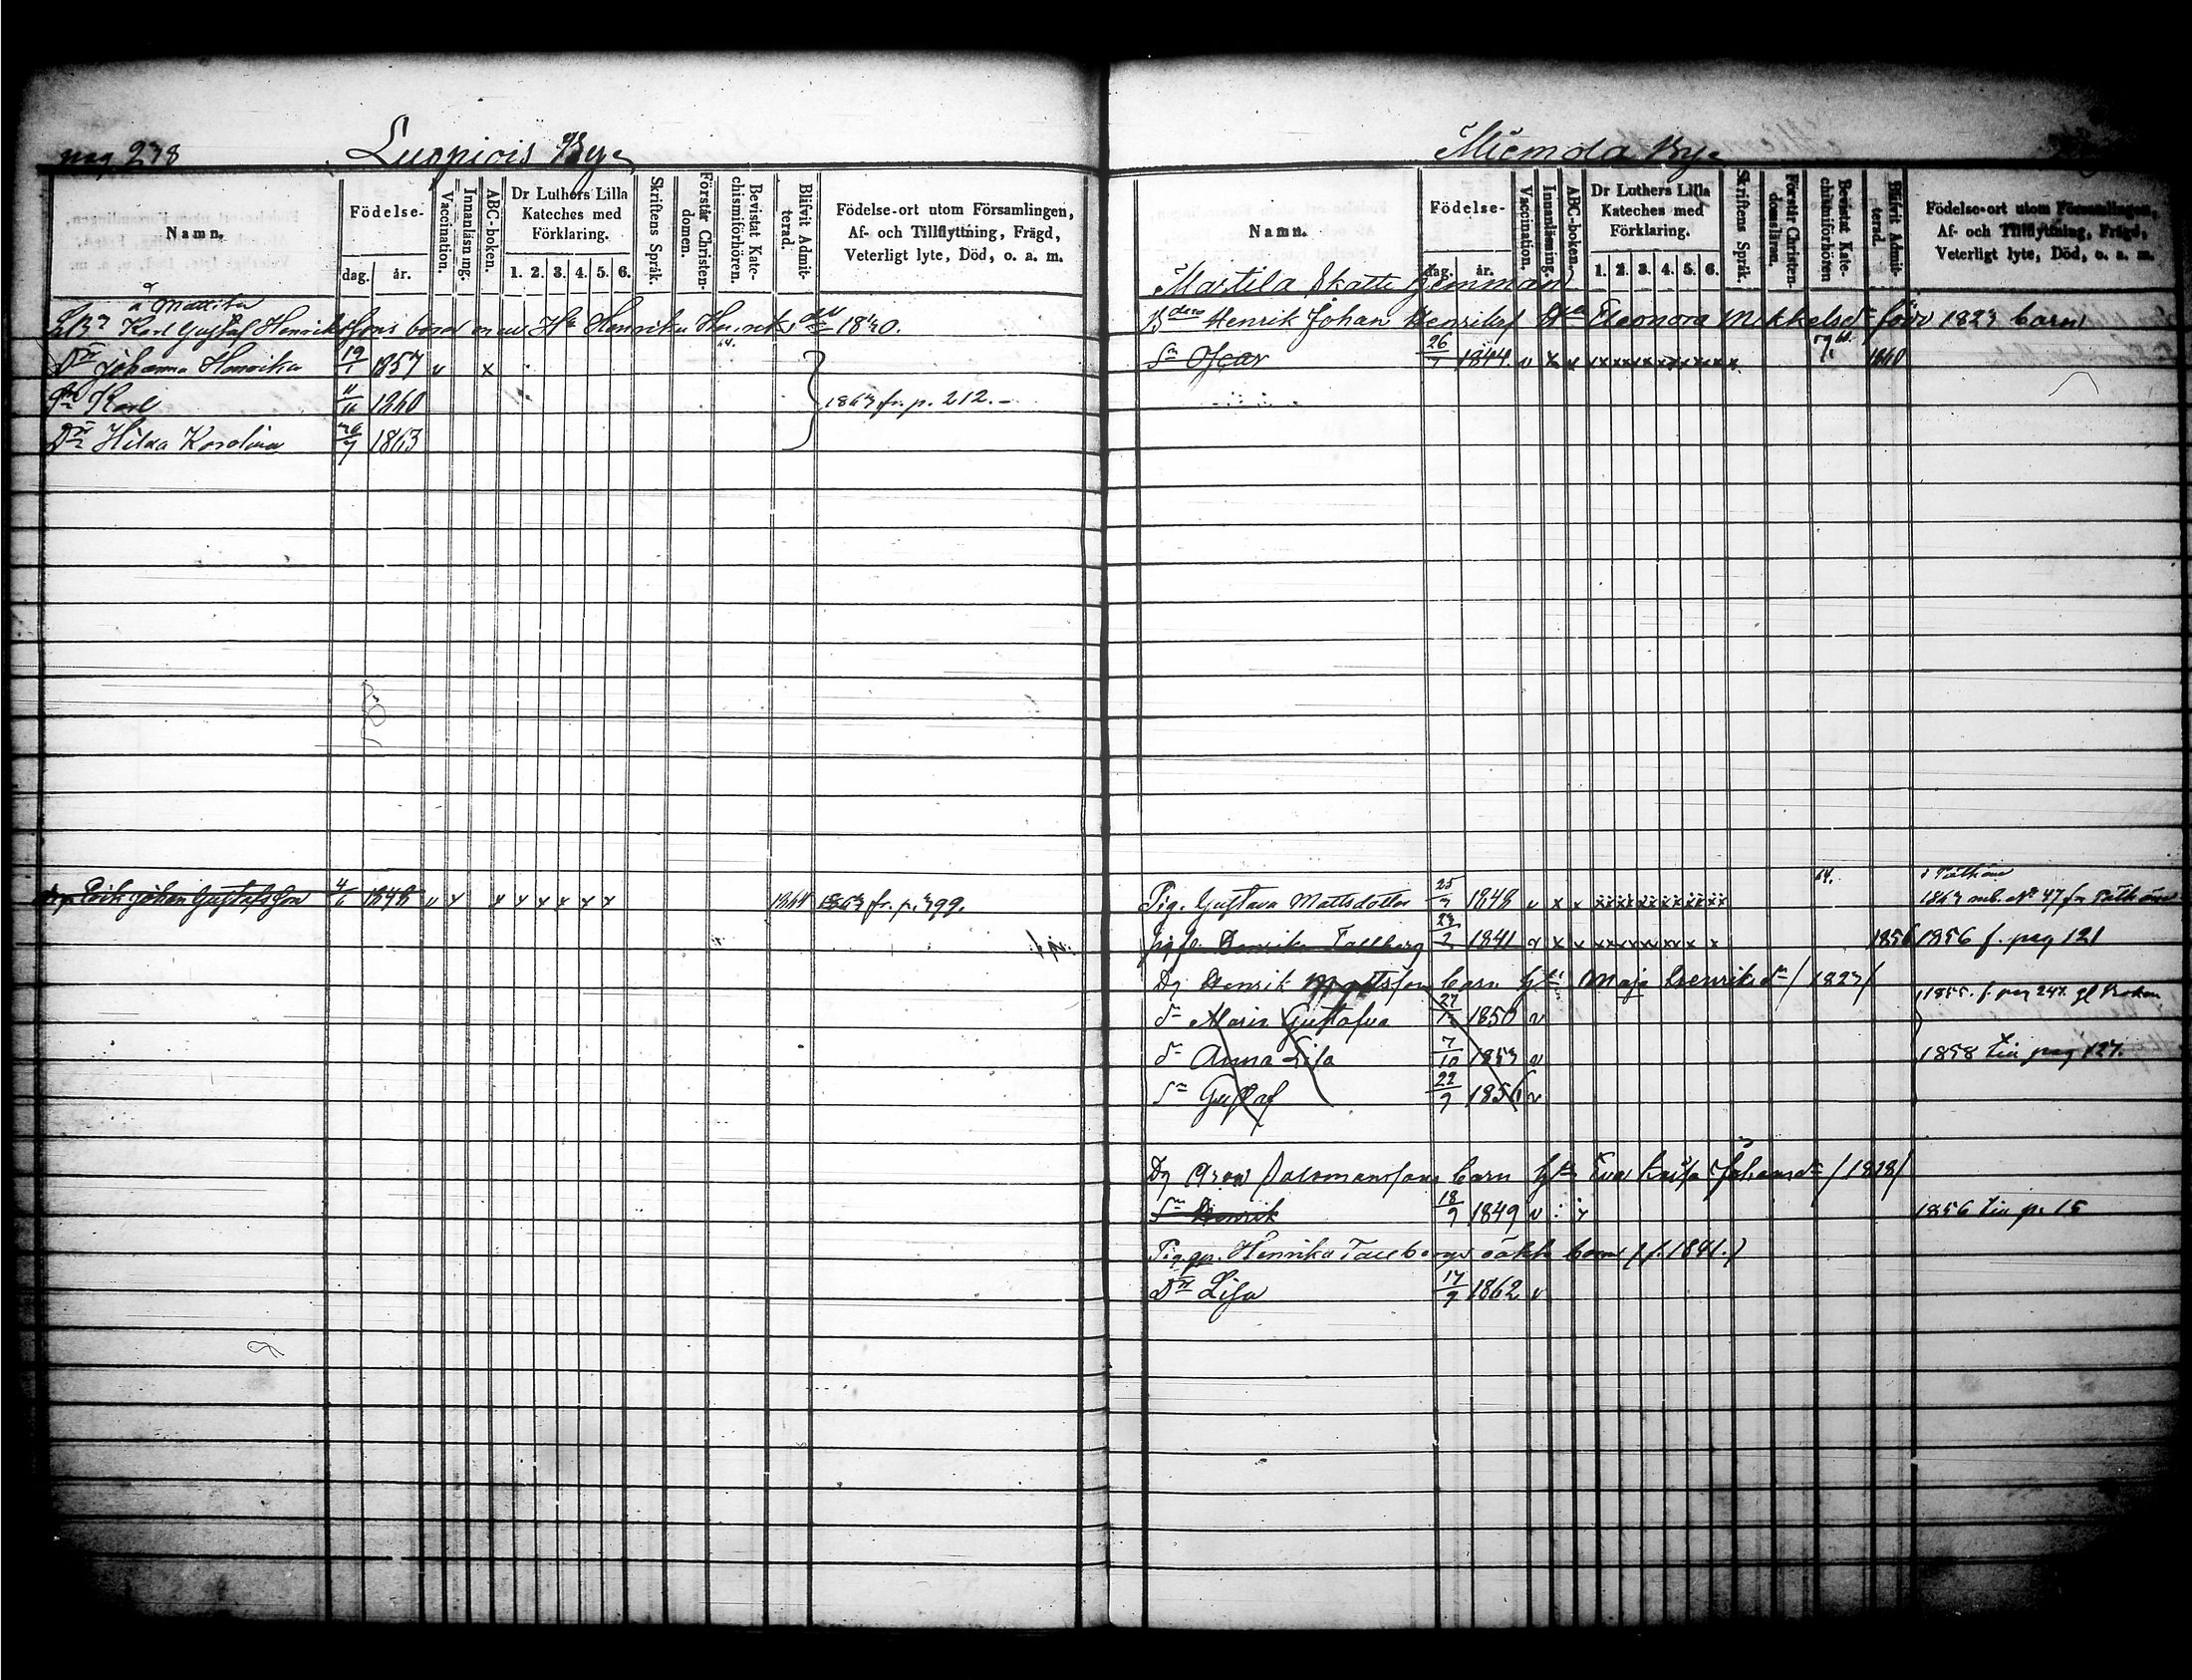 pag 238 Luppiois By
Namn. Födelse- dag. år. Vaccination. Innanläsning. ABC-boken. Dr Luthers Lilla Kateches med Förklaring. 1. 2. 3. 4. 5. 6. Skriftens Språk. Förstår Christendomen. Bevistat Katechismiförhören. Blifvit Admitterad. Födelse-ort utom Församlingen, Af- och Tillflyttning, Frägd, Veterligt lyte, Död, o. a. m.
å Mattila
Karl Gustaf Henrikssons barn med Ha Henrika Henriksdr 1830.
Dr Johanna Henrika 19/1 1857 v x
Sn Karl 11/11 1860 1863 fr. p. 212.
Dr Hilda Karolina 7 1863
Erik Johan Gustafsson 4/6 1848 v x x x x x x x 1864 1863 fr. p. 399.
Miemola By
Namn. Födelse- dag. år. Vaccination. Innanläsning. ABC-boken. Dr Luthers Lilla Kateches med Förklaring. 1. 2. 3. 4. 5. 6. Skriftens Språk. Förstår Christendomsläran. Bevistat Katechismiförhören Blifvit Admitterad. Födelse-ort utom Församlingen, Af- och Tillflyttning, Frägd, Veterligt lyte, Död, o. a. m.
Martila Skatte Hemman
Henrik Johan Henriks Eleonora Mikkelsd född 1823 barn
Sn Oscar 26/7 1844 v x v x x x x x x x x x x 1860
Pig. Gustava Mattsdotter 25/7 1848 v x x x x x x x x x x 64. 1863 mb. No 47 fr
Henrika Tallberg 23/2 1841 v x v x x x x x x x x 1856 1856 f. pag 121
Dg Henrik Mattsson barn Maja Henriksdr (1823)
1855. f. pag 247.
Maria Gustafva 27/12 1850 v
Anna Lisa 7/10 1853 v 1858 till pag 127.
Sn Gustaf 22/9 1856 v
Dg Salomonssons barn Eva Kaisa Johansdr (1828)
Sn Henrik 18/9 1849 v 1856 till p. 15
Pig. Henrika Tallbergs oäkta barn (f. 1841.)
Dr Lisa 17/9 1862 v